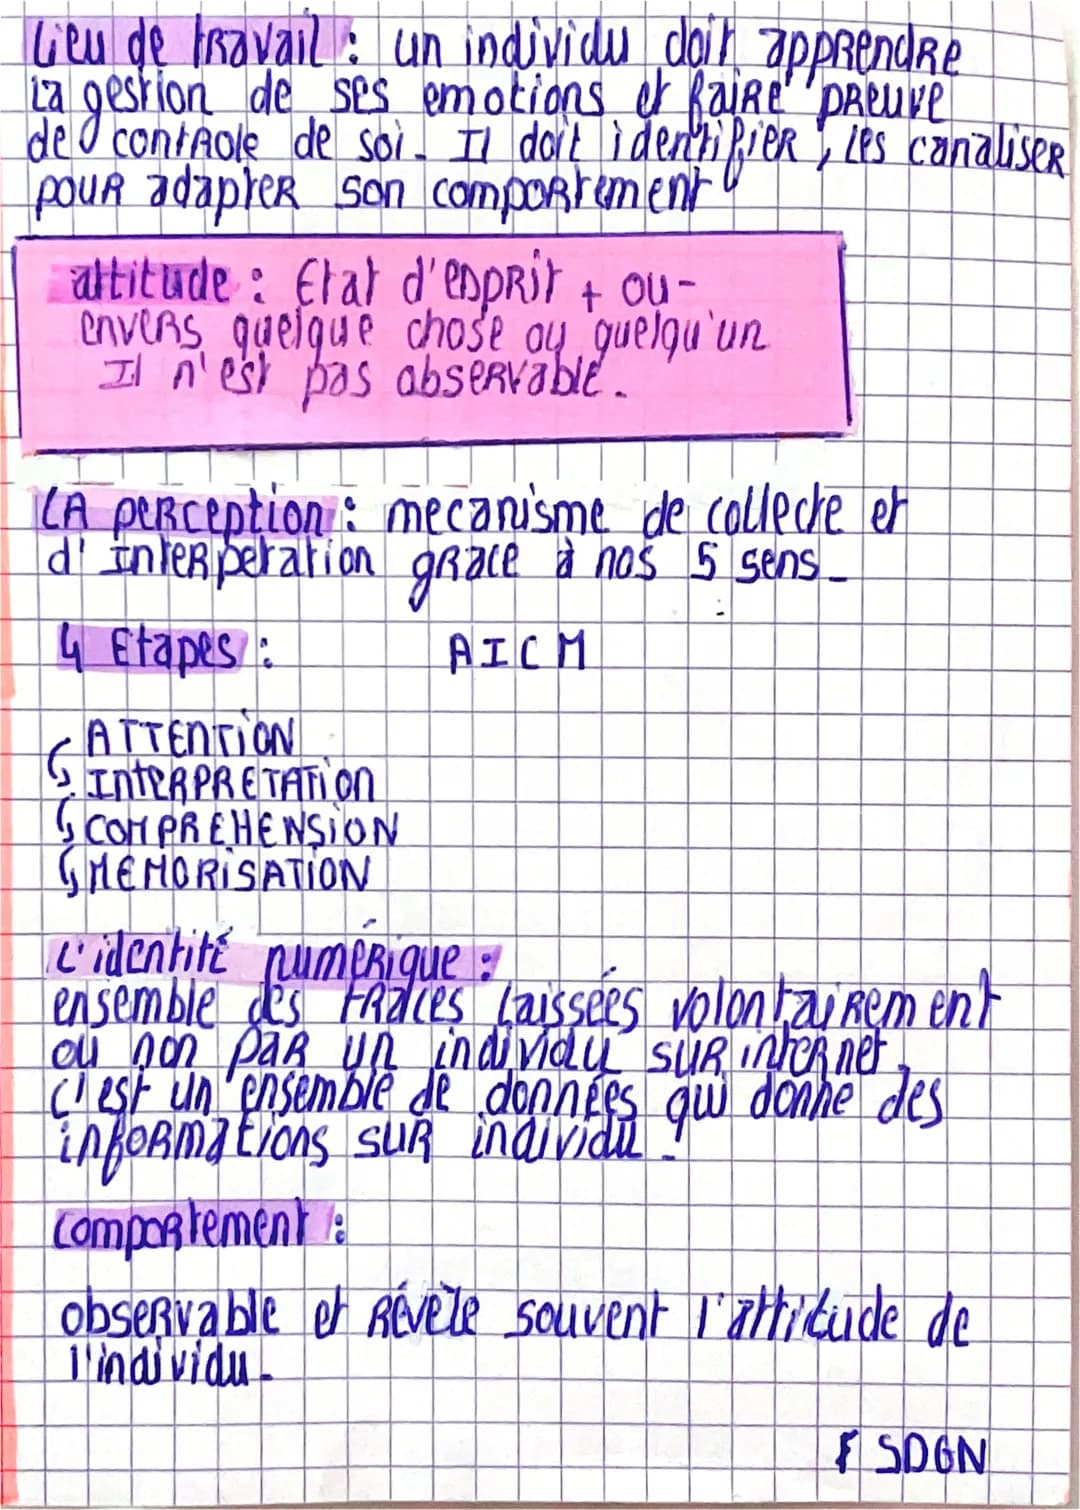 Lieu de travail : un individu doit apprendre
la gestion de ses emotions et faire preuve
de controle de soi. Il doit identifier, les canaliser
pour adapter son comportement
attitude : Etat d'esprit + ou -
envers quelque chose ou quelqu'un
Il n'est pas observable.
LA perception : mecanisme de collecte et
d'Interpetation grace à nos 5 sens.
4 Etapes : AICM
ATTENTION
↳ INTERPRETATION
↳ COMPREHENSION
↳ MEMORISATION
L'identité numérique :
ensemble des traces laissées volontairement
ou non par un individu sur internet.
c'est un ensemble de données qui donne des
informations sur individu.
comportement :
observable et Révèle souvent l'attitude de
l'individu.
SDGN